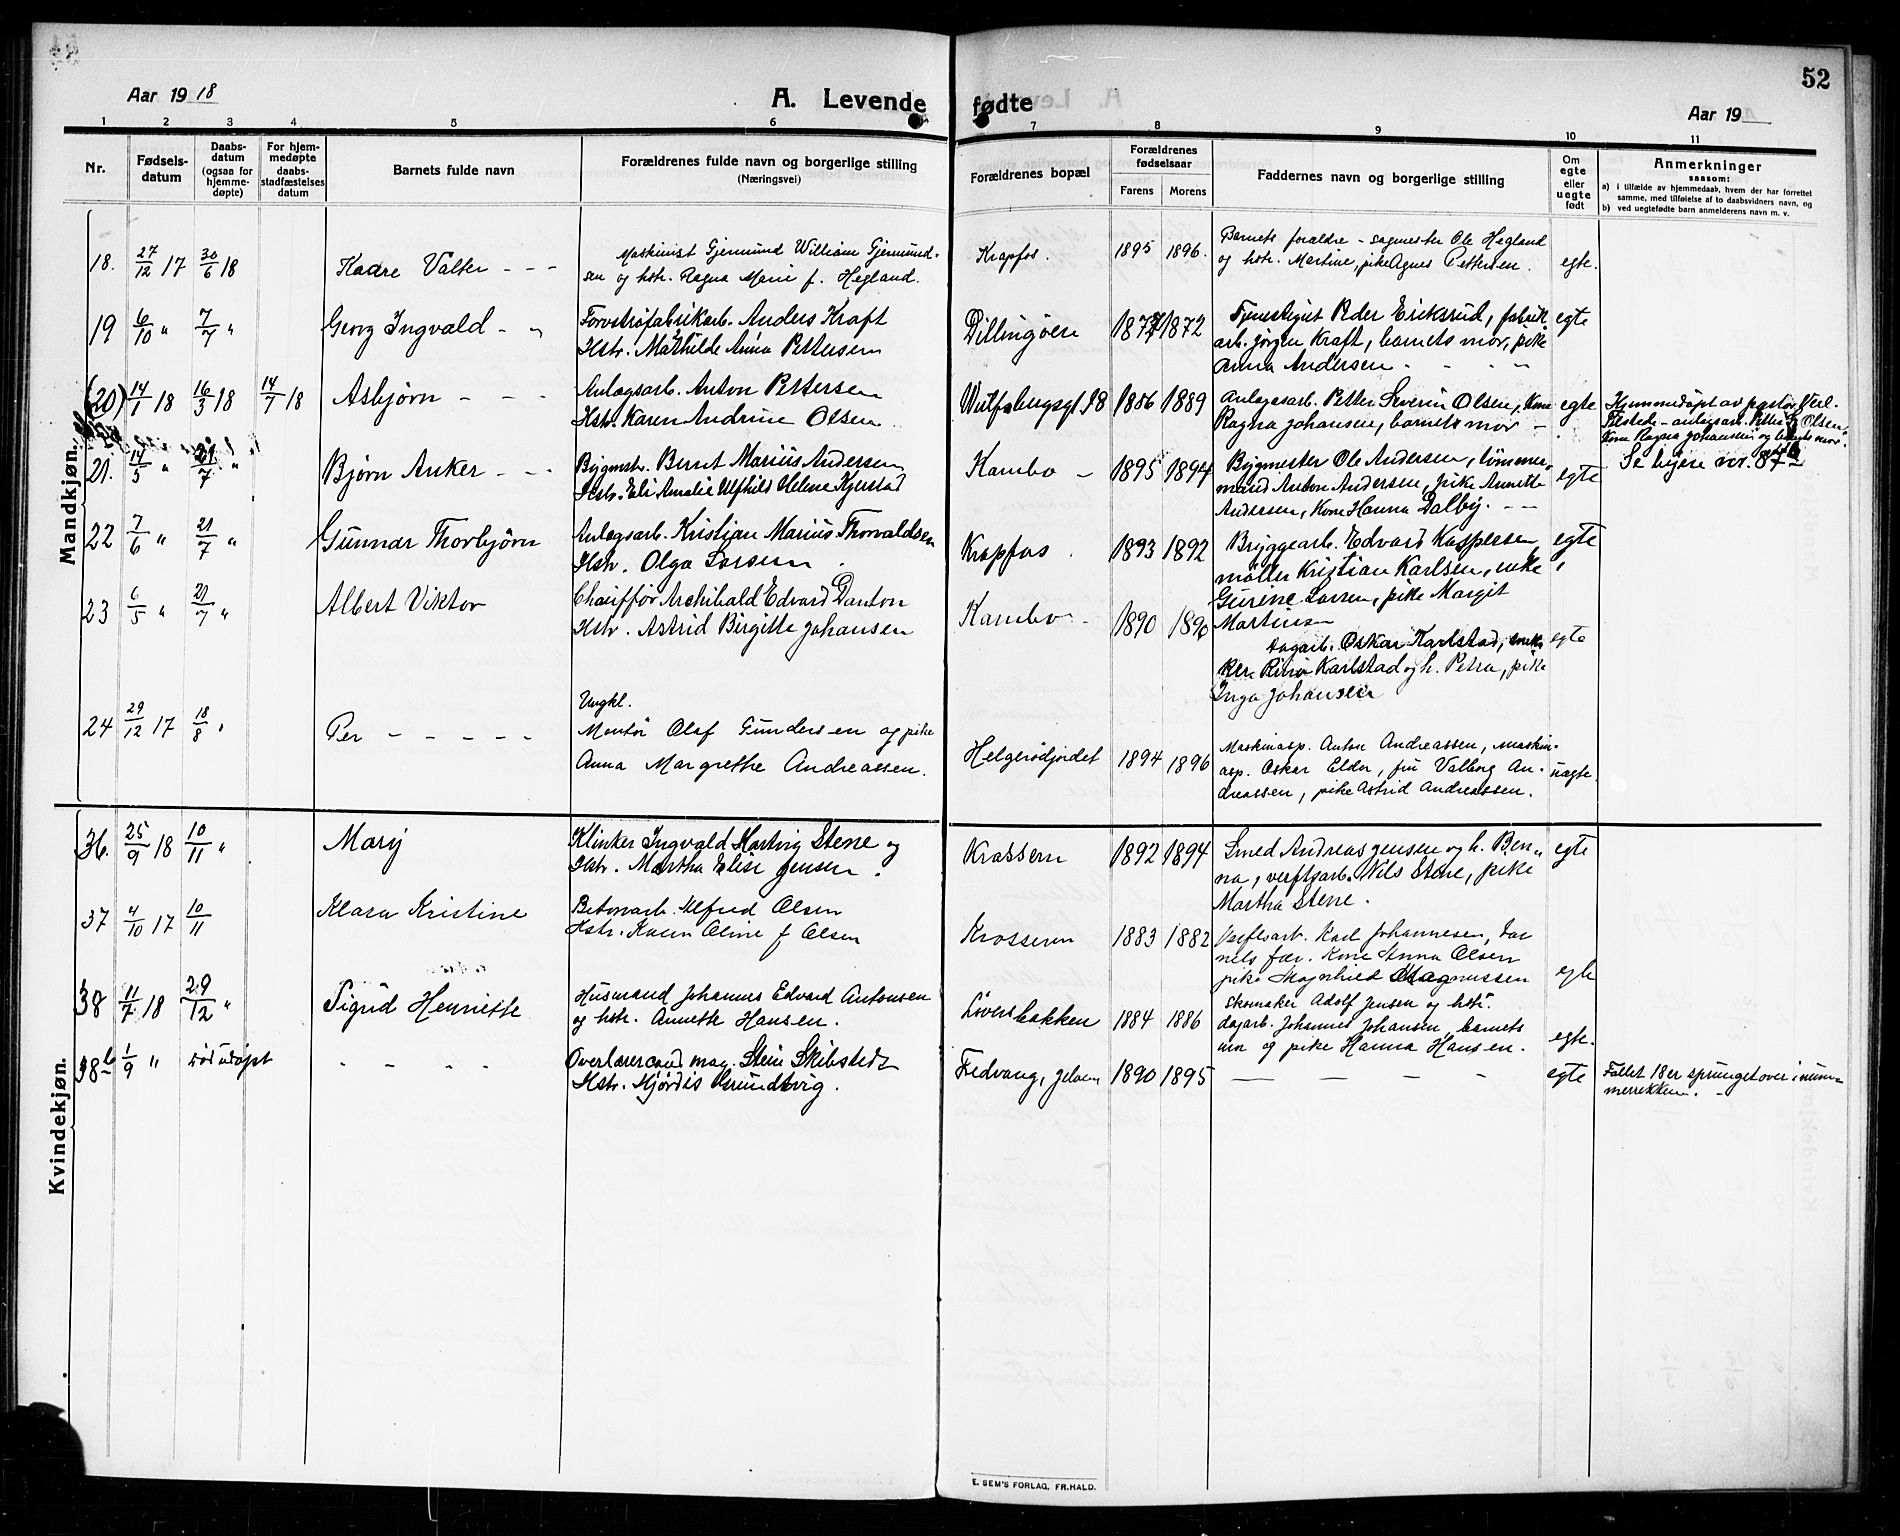 52
Aar 1918
A. Levende fødte
Aar 19
1 2 3 4 5 6 7 8 9 10 11
Nr.
Fødsels-
datum
Daabs-
datum
(ogsaa for
hjemme-
døpte)
For hjem-
medøpte
daabs-
stadfæstelses
datum
Barnets fulde navn
Forældrenes fulde navn og borgerlige stilling
(Næringsvei)
Forældrenes bopæl
Forældrenes
fødselsaar
Farens Morens
Faddernes navn og borgerlige stilling
Om
egte
eller
uegte
født
Anmerkninger
saasom:
a) i tilfælde av hjemmedaab, hvem der har forrettet
samme, med tilføielse af to daabsvidners navn, og
b) ved uegtefødte barn anmelderens navn m. v.
Mandkjøn.
18. 27/12 17 30/6 18 Kaare Valter - - -
Maskinist Gjermund William Gjermund-
sen og hstr. Ragna Marie f. Hegland.
Krapfos. 1895 1896.
Barnets forældre - sagmester Ole Hegland
og hstr. Martine, pike Agnes Pettersen. egte.
19 6/10 " 7/7 " Georg Ingvald - "
Torvstrøfabrikarb. Anders Kraft
Hstr. Mathilde Anna Pettersen
Dillingøen 1877 1872
Peder Eriksrud, fabrik egte
arb. Jørgen Kraft, barnets mor, pike
Anna Andersen - - "
(20) 14/1 18 16/3 18 14/7 18 Asbjørn - - -
Anlægsarb. Anton Pettersen
Hstr. Karen Andrine Olsen
Wulfsbergsgt. 98 1886 1889
Anlægsarb. Petter Severin Olsen, Kone egte
Ragna Johansen, barnets mor -
Hjemmedøpt av pastor
Tilstede - anlægsarb. Petter S. Olsen,
Kone Ragna Johansen og barnets mor.
Se byens nr. 87
21. 14/5 " 21/7 " Bjørn Anker - - -
Bygmstr. Bernt Marius Andersen
Hstr. Eli Amalie Alfhild Helene Kjerstad
Kambo - 1895 1894
Bygmester Ole Andersen, tømmer-
mand Anton Andersen, pike Annette egte
Andersen, Kone Hanna Dalby. - -
22 7/6 " 21/7 " Gunnar Thorbjørn
Anlægsarb. Kristian Marius Thorvaldsen
Hstr. Olga Larsen
Krapfos . 1893 1892
Bryggearb. Edvard Kaspersen egte
møller Kristian Karlsen, enke
Gurine Larsen, pike Margit
Martinsen
23 6/5 " 21/7 " Albert Viktor
Chauffør Archibald Edvard Danton
Hstr. Astrid Birgitte Johansen
Kambo - 1890 1890
Dagarb. Oskar Karlstad, snek egte
ker Karlstad og h. Petra, pike
Inga Johansen
24 29/12 17 18/8 " Per - - - - -
Ungkl.
Montør Olaf Gundersen og pike
Anna Margrethe Andreassen.
Helgerødjordet 1894 1896
Maskinasp. Anton Andreassen, maskin-
asp. Oskar Eldor, fru Valborg An-
dreassen, pike Astrid Andreassen. uegte.
Kvindekjøn.
36. 25/9 18 10/11 " Mary
Klinker Ingvald Hartvig Stene og
Hstr. Martha Elise Jensen.
Krossern 1892 1894
Smed Andreas Jensen og h. Ben- egte
na, verftsarb. Nils Stene, pike
Martha Stene.
37 4/10 17 10/11 Klara Kristine
Betonarb. Alfred Olsen
Hstr. Karen Oline f Olsen
Krosseren 1883 1882
Verftsarb. Karl Johannesen, bar
nets far. Kone Anna Olsen
pike Magnhild Magnussen egte
38 11/7 18 29/12 " Sigrid Henriette
Husmand Johannes Edvard Antonsen
og hstr. Annette Hansen.
Løversbakken 1884 1886
Skomaker Adolf Jensen og hstr.
dagarb. Johannes Johansen, barnets
mor og pike Hanna Hansen. egte.
38b 1/9 " død udøpt - - - -
Overlærer cand. mag. Stein Skibstedt
Hstr. Hjørdis Grundtvig.
Fedvang, Jeløen 1890 1895 — — — - egte
Fallet 18 er sprunget over i num-
merrekken. -
E. SEM'S FORLAG, FR.HALD.